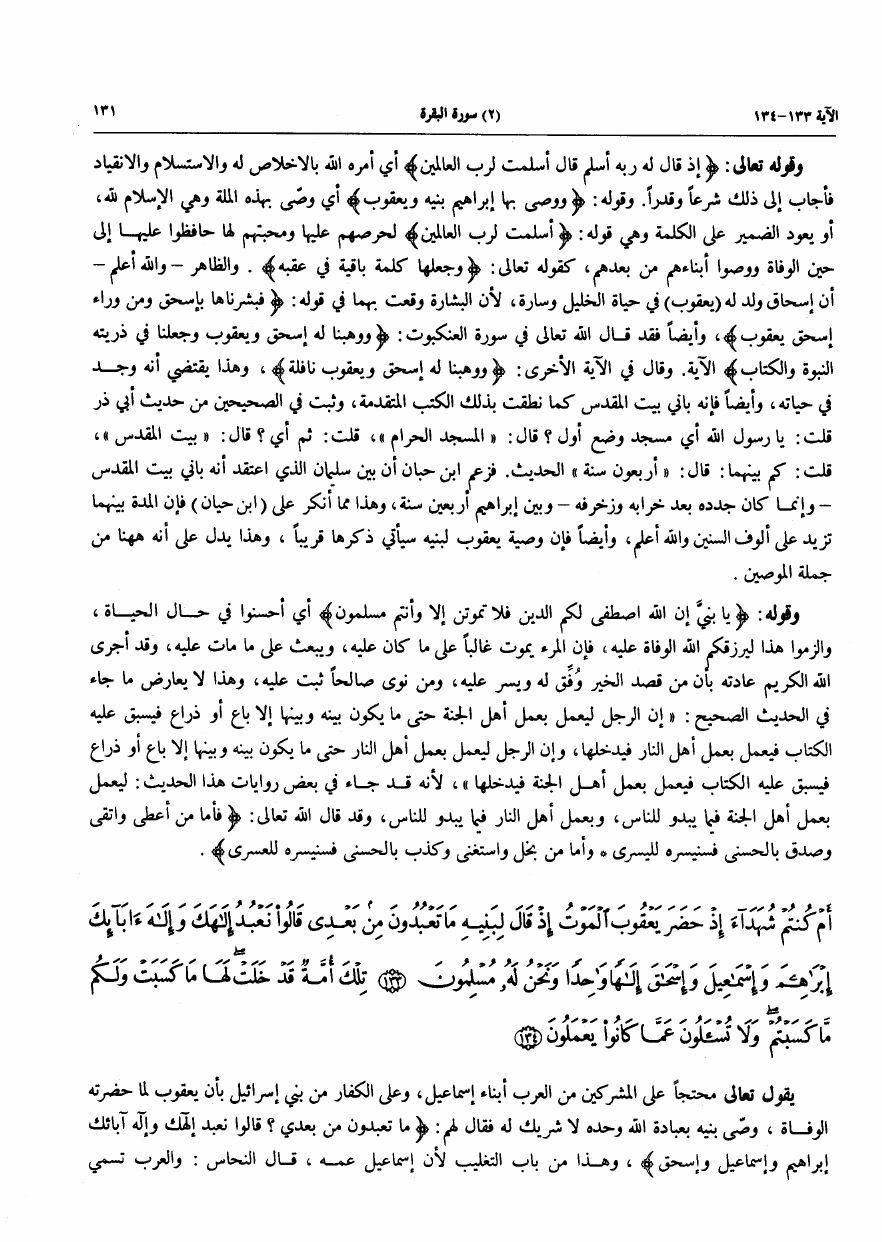 الآية ١٣٣-١٣٤ (٢) سورة البقرة ١٣١
وقوله تعالى: ﴿ إذ قال له ربه أسلم قال أسلمت لرب العالمين﴾ أي أمره الله بالاخلاص له والاستسلام والانقياد
فأجاب إلى ذلك شرعاً وقدراً. وقوله: ﴿ ووصى بها إبراهيم بنيه ويعقوب﴾ أي وصّى بهذه الملة وهي الإسلام لله،
أو يعود الضمير على الكلمة وهي قوله: ﴿ أسلمت لرب العالمين﴾ لحرصهم عليها ومحبتهم لها حافظوا عليها إلى
حين الوفاة ووصوا أبناءهم من بعدهم، كقوله تعالى: ﴿ وجعلها كلمة باقية في عقبه﴾ . والظاهر – والله أعلم –
أن إسحاق ولد له (يعقوب) في حياة الخليل وسارة، لأن البشارة وقعت بهما في قوله: ﴿ فبشرناها بإسحق ومن وراء
إسحق يعقوب﴾، وأيضاً فقد قال الله تعالى في سورة العنكبوت: ﴿ ووهبنا له إسحق ويعقوب وجعلنا في ذريته
النبوة والكتاب﴾ الآية. وقال في الآية الأخرى: ﴿ ووهبنا له إسحق ويعقوب نافلة﴾ ، وهذا يقتضي أنه وجد
في حياته، وأيضاً فإنه باني بيت المقدس كما نطقت بذلك الكتب المتقدمة، وثبت في الصحيحين من حديث أبي ذر
قلت: يا رسول الله أي مسجد وضع أول؟ قال: « المسجد الحرام »، قلت: ثم أي؟ قال: « بيت المقدس »،
قلت: كم بينهما: قال: « أربعون سنة » الحديث. فزعم ابن حبان أن بين سليمان الذي اعتقد أنه باني بيت المقدس
– وإنما كان جدده بعد خرابه وزخرفه – وبين إبراهيم أربعين سنة، وهذا مما أنكر على (ابن حيان) فإن المدة بينهما
تزيد على ألوف السنين والله أعلم، وأيضاً فإن وصية يعقوب لبنيه سيأتي ذكرها قريباً ، وهذا يدل على أنه ههنا من
جملة الموصين .
وقوله: ﴿ يا بنيَّ إن الله اصطفى لكم الدين فلا تموتن إلا وأنتم مسلمون﴾ أي أحسنوا في حال الحياة ،
والزموا هذا ليرزقكم الله الوفاة عليه، فإن المرء يموت غالباً على ما كان عليه، ويبعث على ما مات عليه، وقد أجرى
الله الكريم عادته بأن من قصد الخير وُفِّق له ويسر عليه، ومن نوى صالحاً ثبت عليه، وهذا لا يعارض ما جاء
في الحديث الصحيح: « إن الرجل ليعمل بعمل أهل الجنة حتى ما يكون بينه وبينها إلا باع أو ذراع فيسبق عليه
الكتاب فيعمل بعمل أهل النار فيدخلها، وإن الرجل ليعمل بعمل أهل النار حتى ما يكون بينه وبينها إلا باع أو ذراع
فيسبق عليه الكتاب فيعمل بعمل أهل الجنة فيدخلها »، لأنه قد جاء في بعض روايات هذا الحديث: ليعمل
بعمل أهل الجنة فيما يبدو للناس، وبعمل أهل النار فيما يبدو للناس، وقد قال الله تعالى: ﴿ فأما من أعطى واتقى
وصدق بالحسنى فسنيسره لليسرى * وأما من بخل واستغنى وكذب بالحسنى فسنيسره للعسرى﴾ .
أَمْ كُنتُمْ شُهَدَآءَ إِذْ حَضَرَ يَعْقُوبَ ٱلْمَوْتُ إِذْ قَالَ لِبَنِيهِ مَا تَعْبُدُونَ مِنۢ بَعْدِى قَالُوا۟ نَعْبُدُ إِلَٰهَكَ وَإِلَٰهَ ءَابَآئِكَ
إِبْرَٰهِـۧمَ وَإِسْمَٰعِيلَ وَإِسْحَٰقَ إِلَٰهًا وَٰحِدًا وَنَحْنُ لَهُۥ مُسْلِمُونَ ﴿١٣٣﴾ تِلْكَ أُمَّةٌ قَدْ خَلَتْ ۖ لَهَا مَا كَسَبَتْ وَلَكُم
مَّا كَسَبْتُمْ ۖ وَلَا تُسْـَٔلُونَ عَمَّا كَانُوا۟ يَعْمَلُونَ ﴿١٣٤﴾
يقول تعالى محتجاً على المشركين من العرب أبناء إسماعيل، وعلى الكفار من بني إسرائيل بأن يعقوب لما حضرته
الوفاة ، وصّى بنيه بعبادة الله وحده لا شريك له فقال لهم: ﴿ ما تعبدون من بعدي ؟ قالوا نعبد إلهك وإله آبائك
إبراهيم وإسماعيل وإسحق﴾ ، وهذا من باب التغليب لأن إسماعيل عمه ، قال النحاس : والعرب تسمي